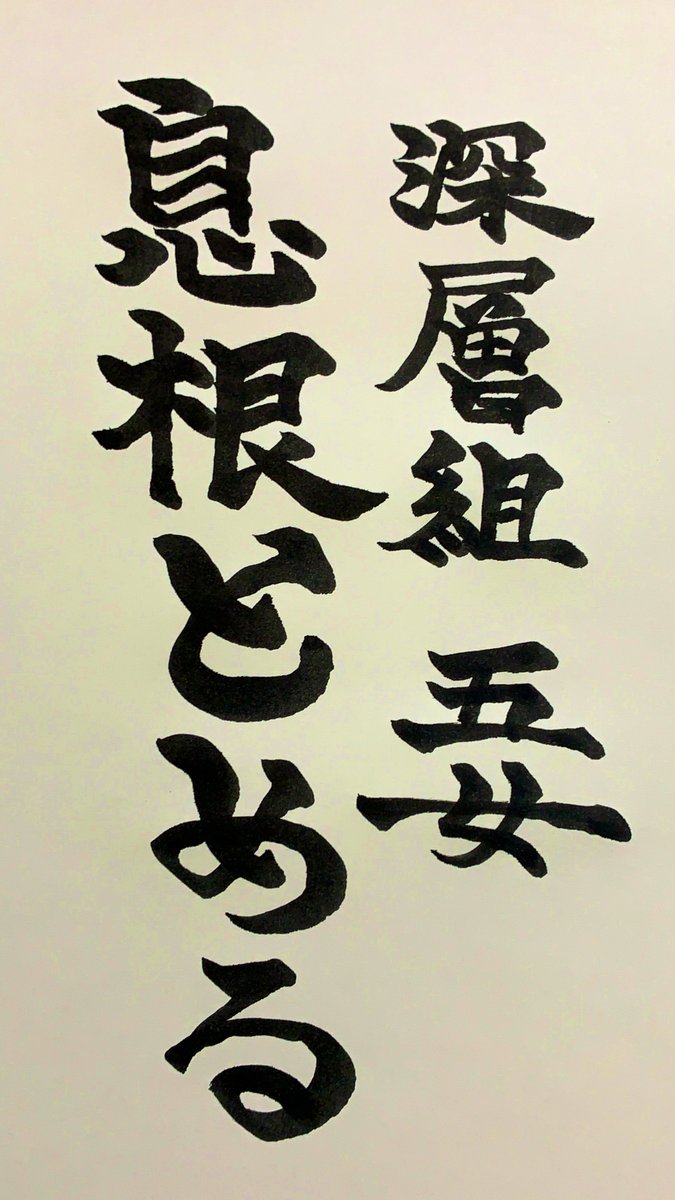 深層組 五女
息根とめる